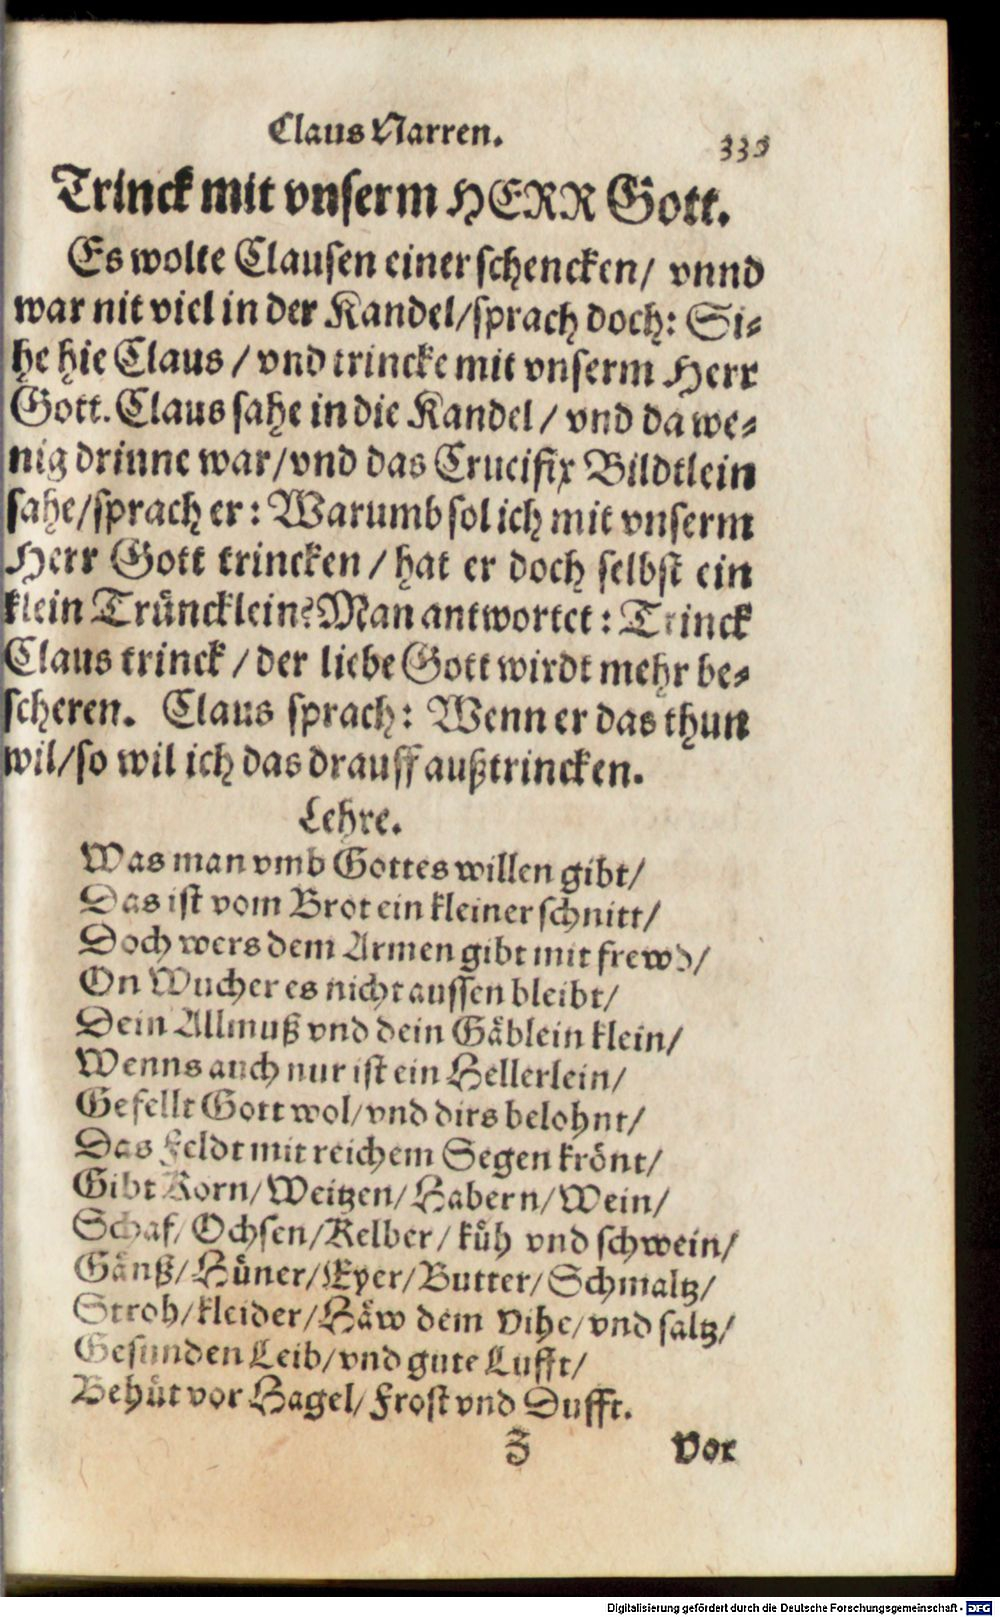 Claus Narren.
Trinck mit vnserm HERR Gott.
Es wolte Clausen einer schencken/ vnnd
war nit viel in der Kandel/sprach doch: Si⸗
he hie Claus / vnd trincke mit vnserm Herr
Gott. Claus sahe in die Kandel / vnd da we⸗
nig drinne war/vnd das Crucifix Bildtlein
sahe/sprach er: Warumb sol ich mit vnserm
Herr Gott trincken / hat er doch selbst ein
klein Trüncklein? Man antwortet: Trinck
Claus trinck / der liebe Gott wirdt mehr be⸗
scheren. Claus sprach: Wenn er das thun
wil/so wil ich das drauff außtrincken.
Lehre.
Was man vmb Gottes willen gibt/
Das ist vom Brot ein kleiner schnitt/
Doch wers dem Armen gibt mit frewd/
On Wucher es nicht aussen bleibt/
Dein Allmuß vnd dein Gäblein klein/
Wenns auch nur ist ein Hellerlein/
Gefellt Gott wol/vnd dirs belohnt/
Das Feldt mit reichem Segen krönt/
Gibt Korn/Weitzen/Habern/Wein/
Schaf/Ochsen/Kelber/ küh vnd schwein/
Gänß/Hüner/Eyer/Butter/Schmaltz/
Stroh/kleider/Häw dem Vihe/vnd saltz/
Gesunden Leib/vnd gute Lufft/
Behüt vor Hagel/Frost vnd Dufft.
Z Vor
Digitalisierung gefördert durch die Deutsche Forschungsgemeinschaft - DFG